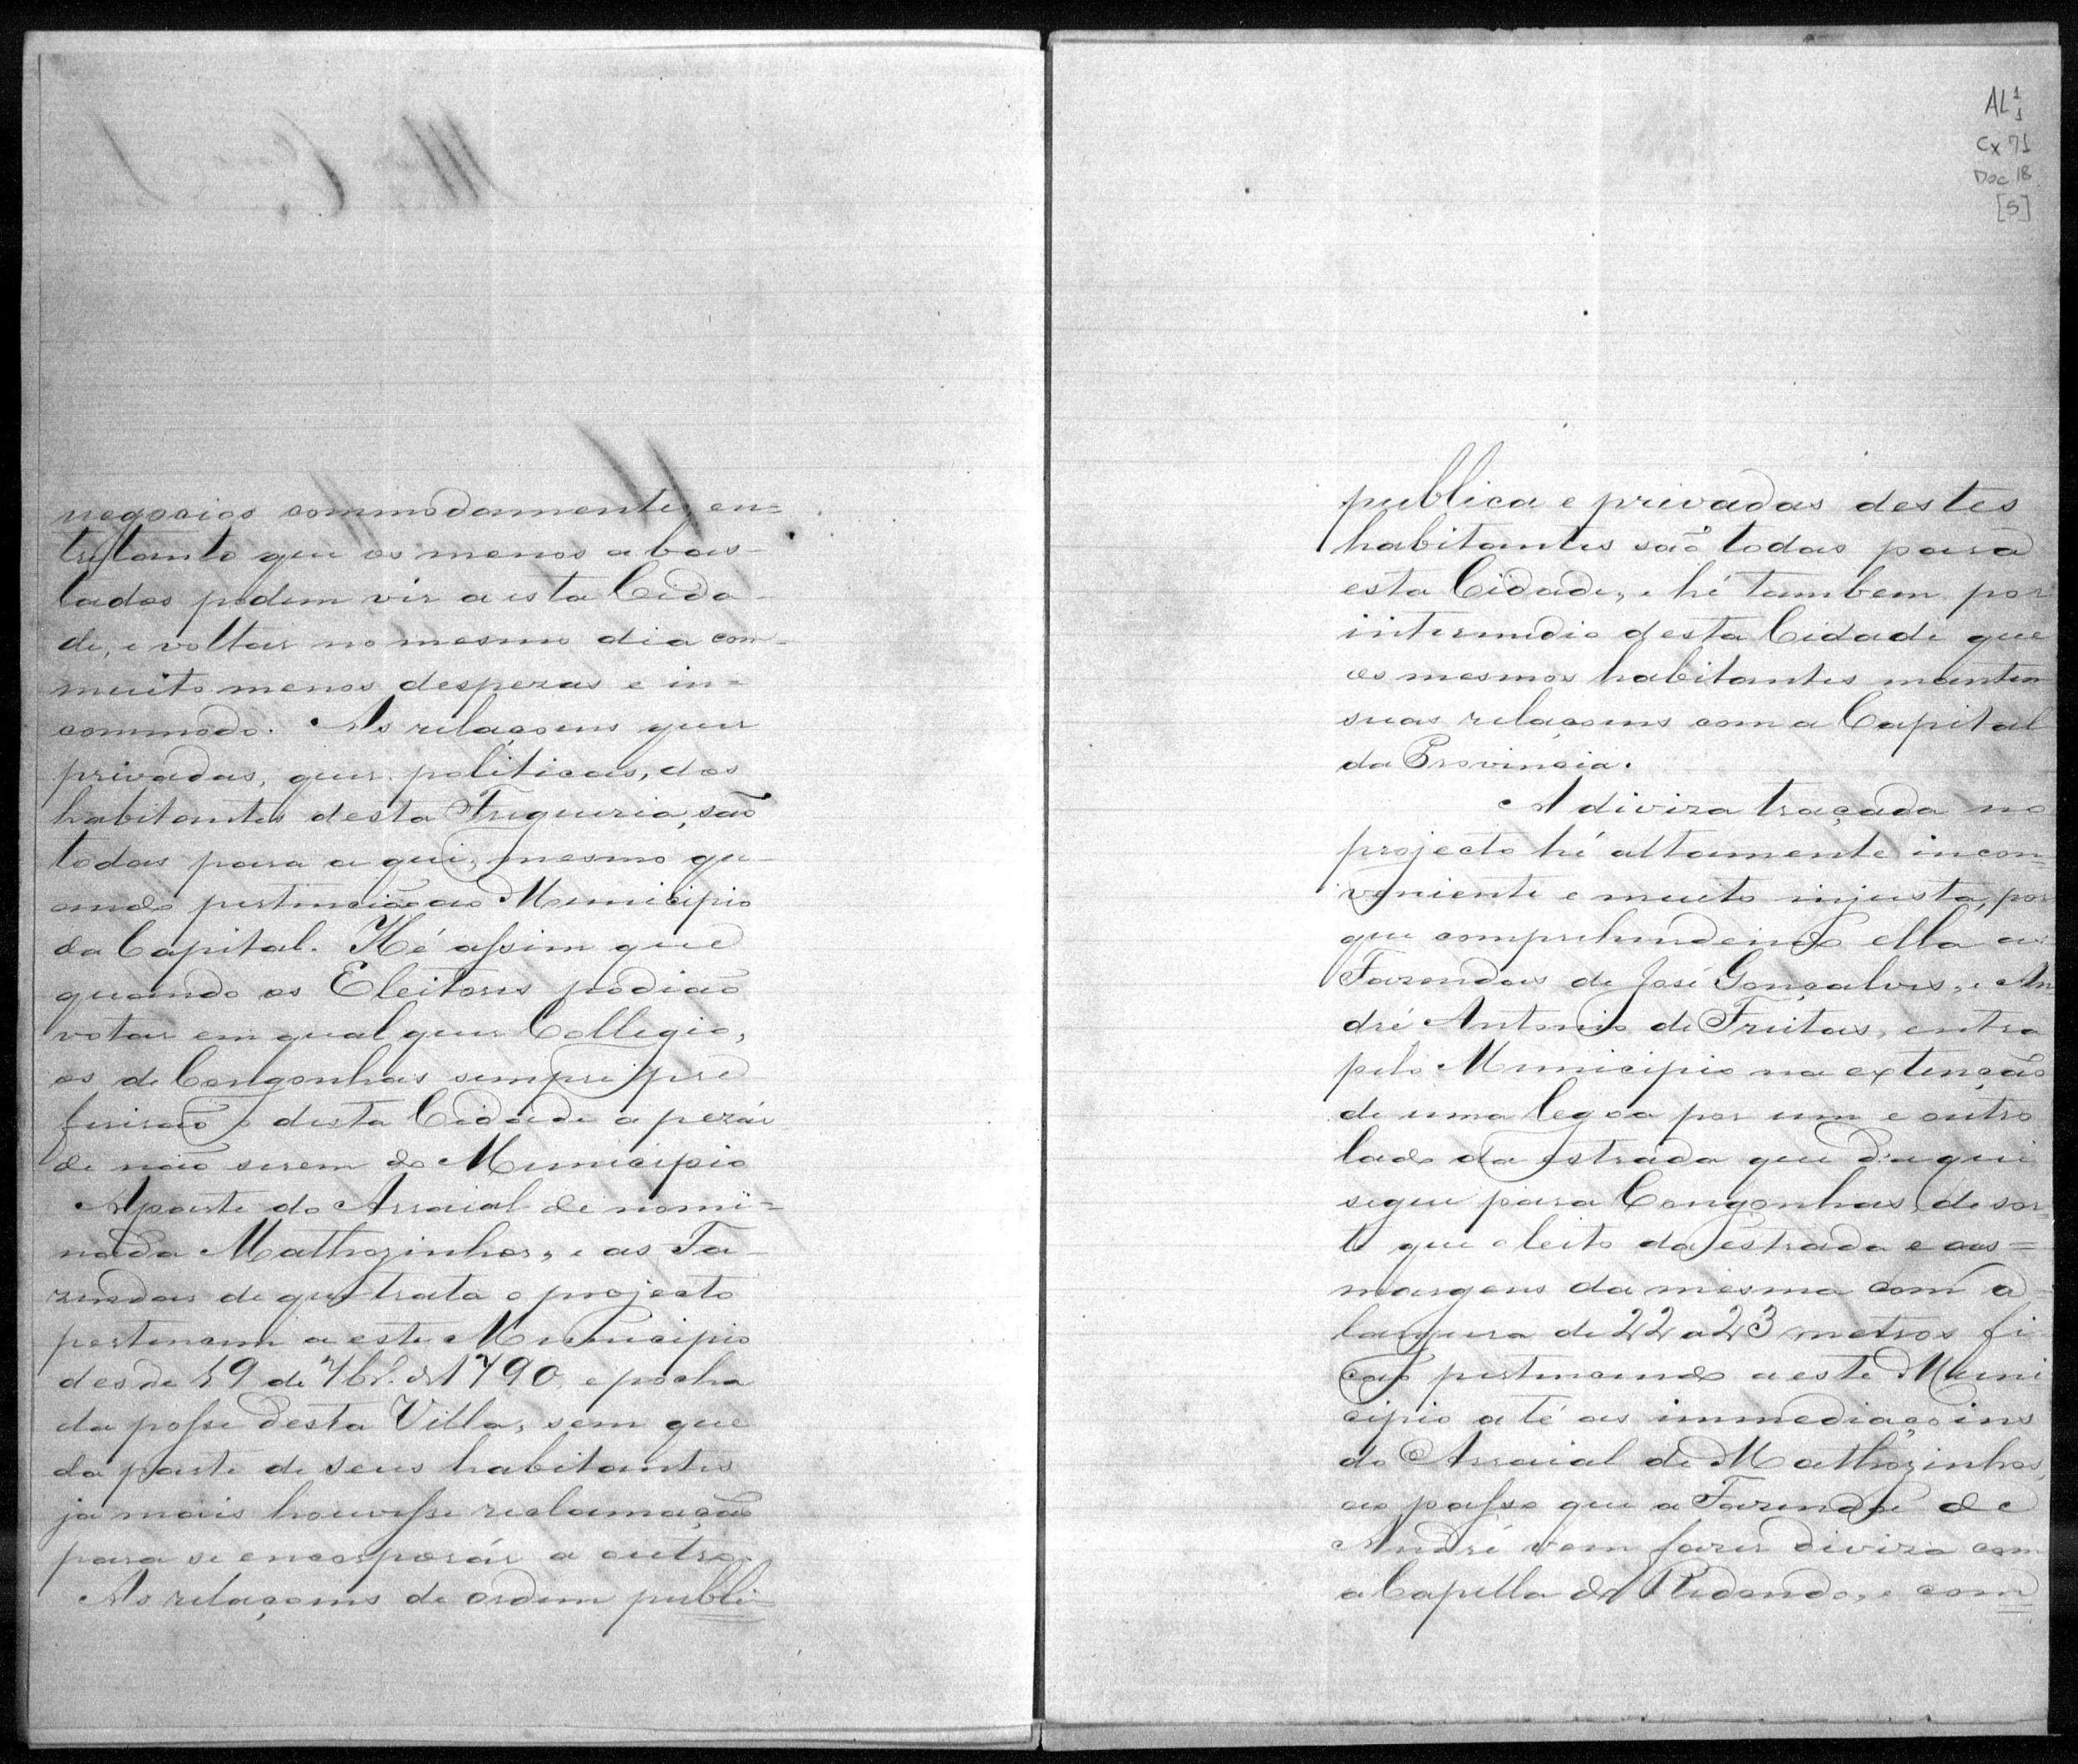 negocios commodamente, en=
tretanto que os menos abas-
tados podem vir a esta Cida-
de, e voltar no mesmo dia com
muito menos despezas e in=
commodo. As relaçoens quer
privadas, quer politicas, dos
habitantes desta Freguezia, são
todas para aqui, mesmo qu-
ando pertencião ao Municipio
da Capital. Hé assim que
quando os Eleitores podião
votar em qualquer Collegio,
os de Congonhas sempre pre
ferirão o desta Cidade a pezár
de não serem do Municipio
A parte do Arraial denomi=
nada Mathozinhos, e as Fa-
zendas de que trata o projecto
pertencem a este Municipio
desde 19 de 7br.º de 1790, epocha
da posse desta Villa, sem que
da parte de seus habitantes
ja mais houvesse reclamação
para se encorporár a outro.
As relaçoens de ordem publi-
AL 1
1
Cx 71
Doc 18
[5]
publica e privadas destes
habitantes são todas para
esta Cidade, e hé tambem por
intermedio desta Cidade que
os mesmos habitantes mantem
suas relaçoens com a Capital
da Provincia.
A diviza traçada no
projecto hé altamente incon=
veniente e muito injusta, por
que comprehendendo ella as
Fazendas de José Gonçalves, e An
dré Antonio de Freitas, entra
pelo Municipio na extenção
de uma legoa por um e outro
lado da estrada que d'aqui
segue para Congonhas, de sor=
te que o leito da estrada e as=
margens da mesma com a
largura de 22 a 23 metros fi
cão pertencendo a este Muni
cipio até as immediaçoins
do Arraial de Mathozinhos,
ao passo que a Fazenda de
André vem fazer diviza com
a Capella do Redondo, e com